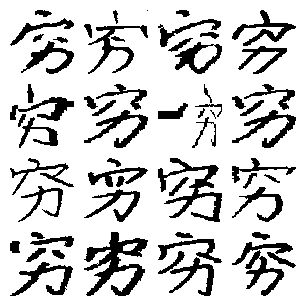 穷穷穷穷
穷穷穷穷
穷穷穷穷
穷穷穷穷